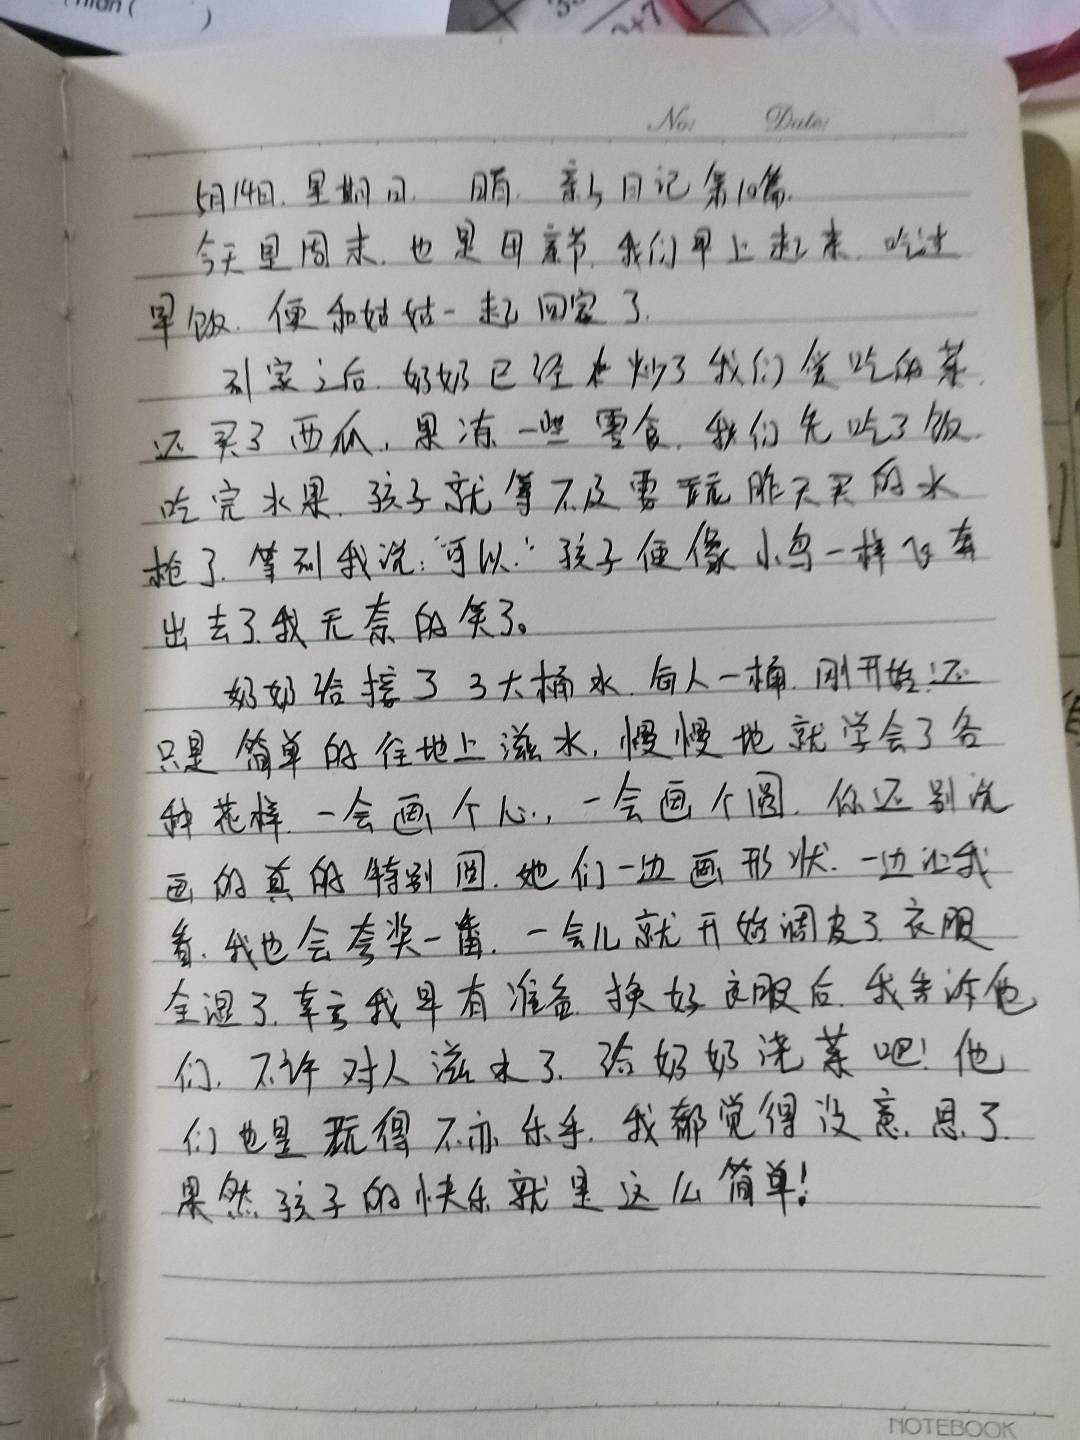 No: Date:
5月14日.星期日. 晴. 亲子日记第10篇.
今天是周末.也是母亲节.我们早上起来.吃过
早饭.便和姑姑一起回家了.
到家之后.奶奶已经炒了我们爱吃的菜.
还买了西瓜,果冻一些零食.我们先吃了饭.
吃完水果.孩子就等不及要玩昨天买的水
枪了.等到我说:"可以."孩子便像小鸟一样飞奔
出去了.我无奈的笑了。
奶奶给接了3大桶水.每人一桶.刚开始还
只是简单的往地上滋水,慢慢地就学会了各
种花样.一会画个心,一会画个圆.你还别说
画的真的特别圆.她们一边画形状.一边让我
看.我也会夸奖一番.一会儿就开始调皮了.衣服
全湿了.幸亏我早有准备.换好衣服后.我告诉他
们.不许对人滋水了.给奶奶浇菜吧!他
们也是玩得不亦乐乎.我都觉得没意思了.
果然孩子的快乐就是这么简单!
NOTEBOOK